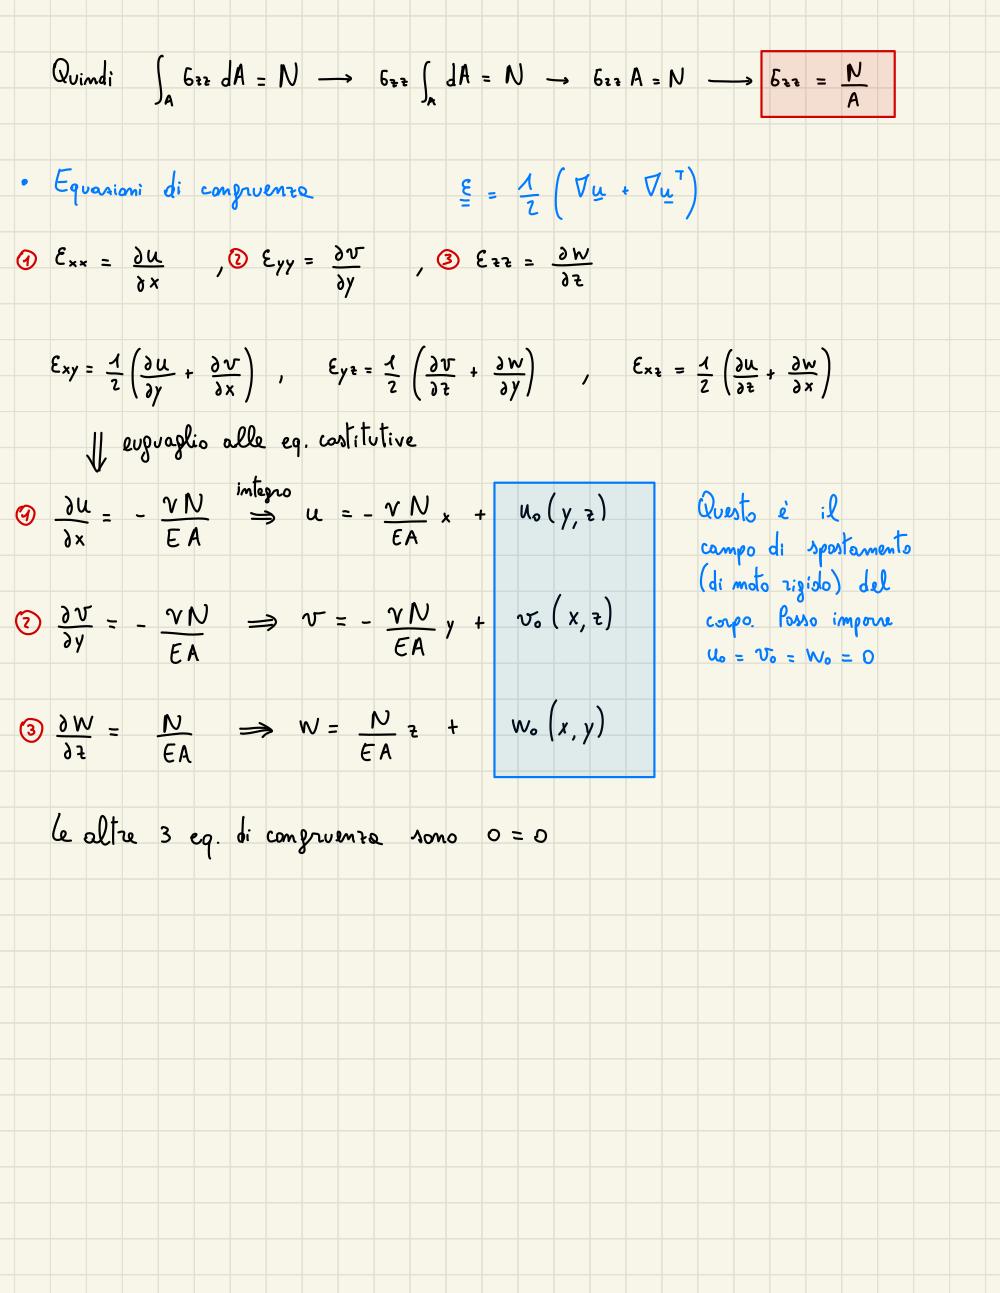 Quindi ∫_A σzz dA = N ⟶ σzz ∫_A dA = N → σzz A = N ⟶ σzz = N/A
• Equazioni di congruenza ε = 1/2 (∇u + ∇uᵀ)
① εxx = ∂u/∂x , ② εyy = ∂v/∂y , ③ εzz = ∂w/∂z
εxy = 1/2 (∂u/∂y + ∂v/∂x) , εyz = 1/2 (∂v/∂z + ∂w/∂y) , εxz = 1/2 (∂u/∂z + ∂w/∂x)
⇓ euguaglio alle eq. costitutive
integro
① ∂u/∂x = - νN/EA ⇒ u = - νN/EA x + u₀(y,z)
② ∂v/∂y = - νN/EA ⇒ v = - νN/EA y + v₀(x,z)
③ ∂w/∂z = N/EA ⇒ w = N/EA z + w₀(x,y)
Questo è il
campo di spostamento
(di moto rigido) del
corpo. Posso imporre
u₀ = v₀ = w₀ = 0
Le altre 3 eq. di congruenza sono 0 = 0